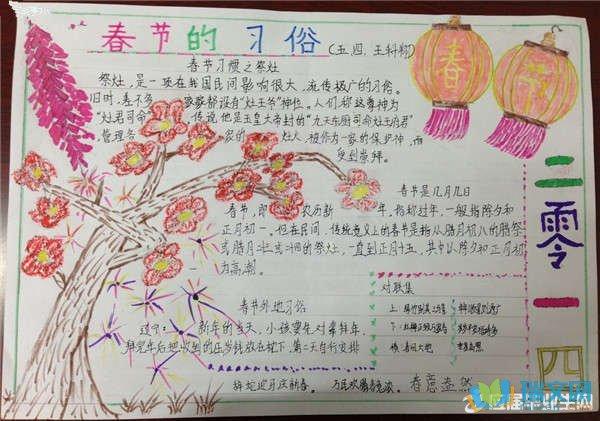 春节的习俗
(五.四.王科翔)
春节习惯之祭灶
祭灶，是一项在我国民间影响很大，流传极广的习俗。
旧时，差不多 家家都设有"灶王爷"神位。人们称这尊神为
"灶君司命 传说他是玉皇大帝封的"九天东厨司命灶王府君"
管理各 家的 灶火，被作为一家的保护神，而
受到崇拜。
春节
春节是几月几日
春节，即 农历新 年，指称过年，一般指除夕和
正月初一。但在民间，传统意义上的春节是指从腊月初八的腊祭
或腊月 的祭灶，一直到正月十五，其中以除夕和正月初
为高潮。
春节外地习俗
辽宁： 新年的当天，小孩要先对辈拜年，
拜完年后把收到的压岁钱放在枕下，第二天自行安排
对联集
上：
下：
横：春回大地
辞蛇迎马庆新春。 万民欢腾 春意盎然
二零一四
应届毕业生网